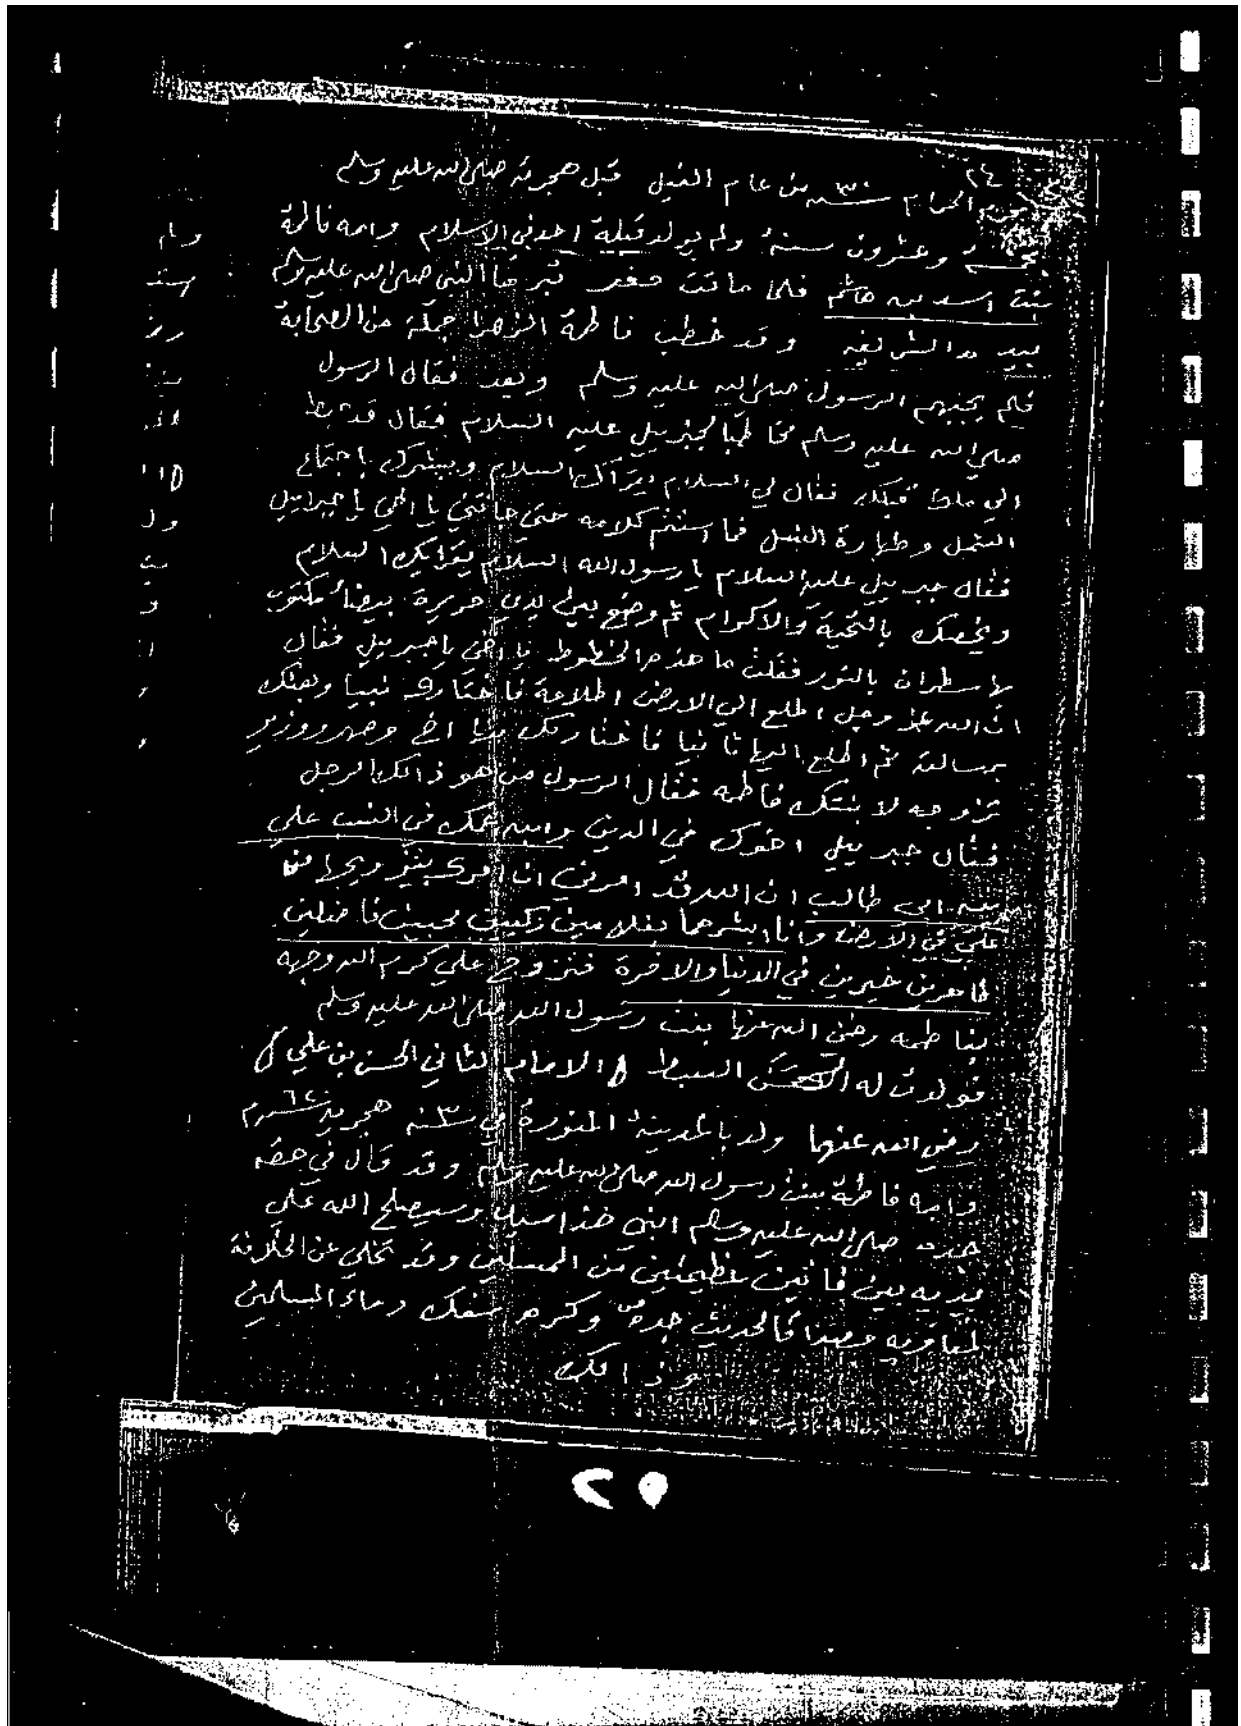 ٢٤
محرم الحرام سنة ٣٠ من عام الفيل قبل هجرته صلى الله عليه وسلم
بخمسة وعشرون سنة ولم يولد قبله احد في الاسلام وامه فاطمة
بنت اسد بن هاشم فلما ماتت حفر قبرها النبي صلى الله عليه وسلم
بيده الشريفه وقد خطب فاطمة الزهرا جملة من الصحابة
فلم يجبهم الرسول صلى الله عليه وسلم وبعد فقال الرسول
صلى الله عليه وسلم مخاطبا لجبريل عليه السلام فقال قد هبط
الي ملك قبلك فقال لي السلام يقراك السلام ويبشرك باجتماع
الشمل وطهارة النسل فما استتم كلامه حتى جائني يا اخي يا جبرايل
فقال جبريل عليه السلام يا رسول الله السلام يقرايك السلام
ويخصك بالتحية والاكرام ثم وضع بين يدي حريرة بيضاء مكتوب
بها سطران بالنور فقلت ما هذه الخطوط يا اخي يا جبريل فقال
ان الله عز وجل اطلع الي الارض اطلاعة فاختارك نبيا وبعثك
برسالته ثم اطلع اليها ثانيا فاختار لك منها اخ وصهر ووزير
تزوجه لابنتك فاطمه فقال الرسول من هو ذالك الرجل
فقال جبريل اخوك في الدين وابن عمك في النسب علي
بن ابي طالب ان الله قد امرني ان امرك بتزويجها من
علي في الارض وانا ابشرهما بغلامين زكيين محبين فاضلين
طاهرين خيرين في الدنيا والاخرة فتزوج علي كرم الله وجهه
بفاطمه رضي الله عنها بنت رسول الله صلى الله عليه وسلم
فولدت له الحسن السبط الامام الثاني الحسن بن علي
رضي الله عنهما ولد بالمدينة المنورة في سنة ٣ هجرية
وامه فاطمة بنت رسول الله صلى الله عليه وسلم وقد قال في حقه
جده صلى الله عليه وسلم ابني هذا سيد وسيصلح الله على
يديه بين فأتين عظيمتين من المسلمين وقد تخلي عن الخلافة
لمعاويه مصداقا لحديث جده ص وكره سفك دماء المسلمين
وذالك
٢٥